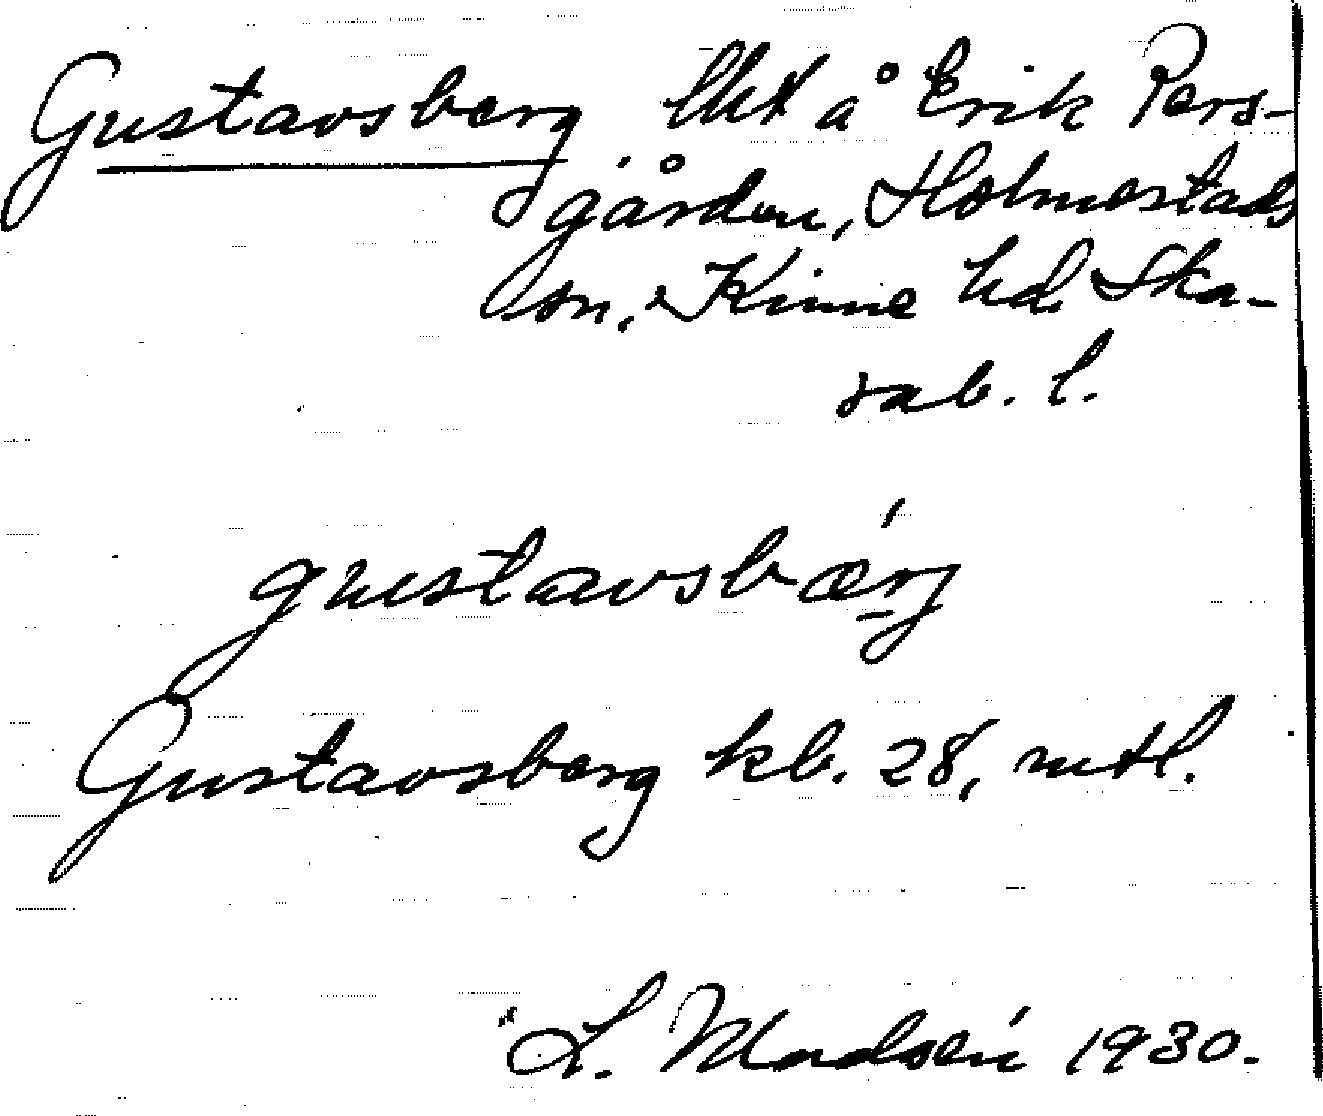 Gustavsberg lht å Erik Pers-
gården, Holmestads
sn, Kinne hd. Ska-
rab. l.
gustavsbærg
Gustavsberg kb. 28, mtl.
L. Modsén 1930.